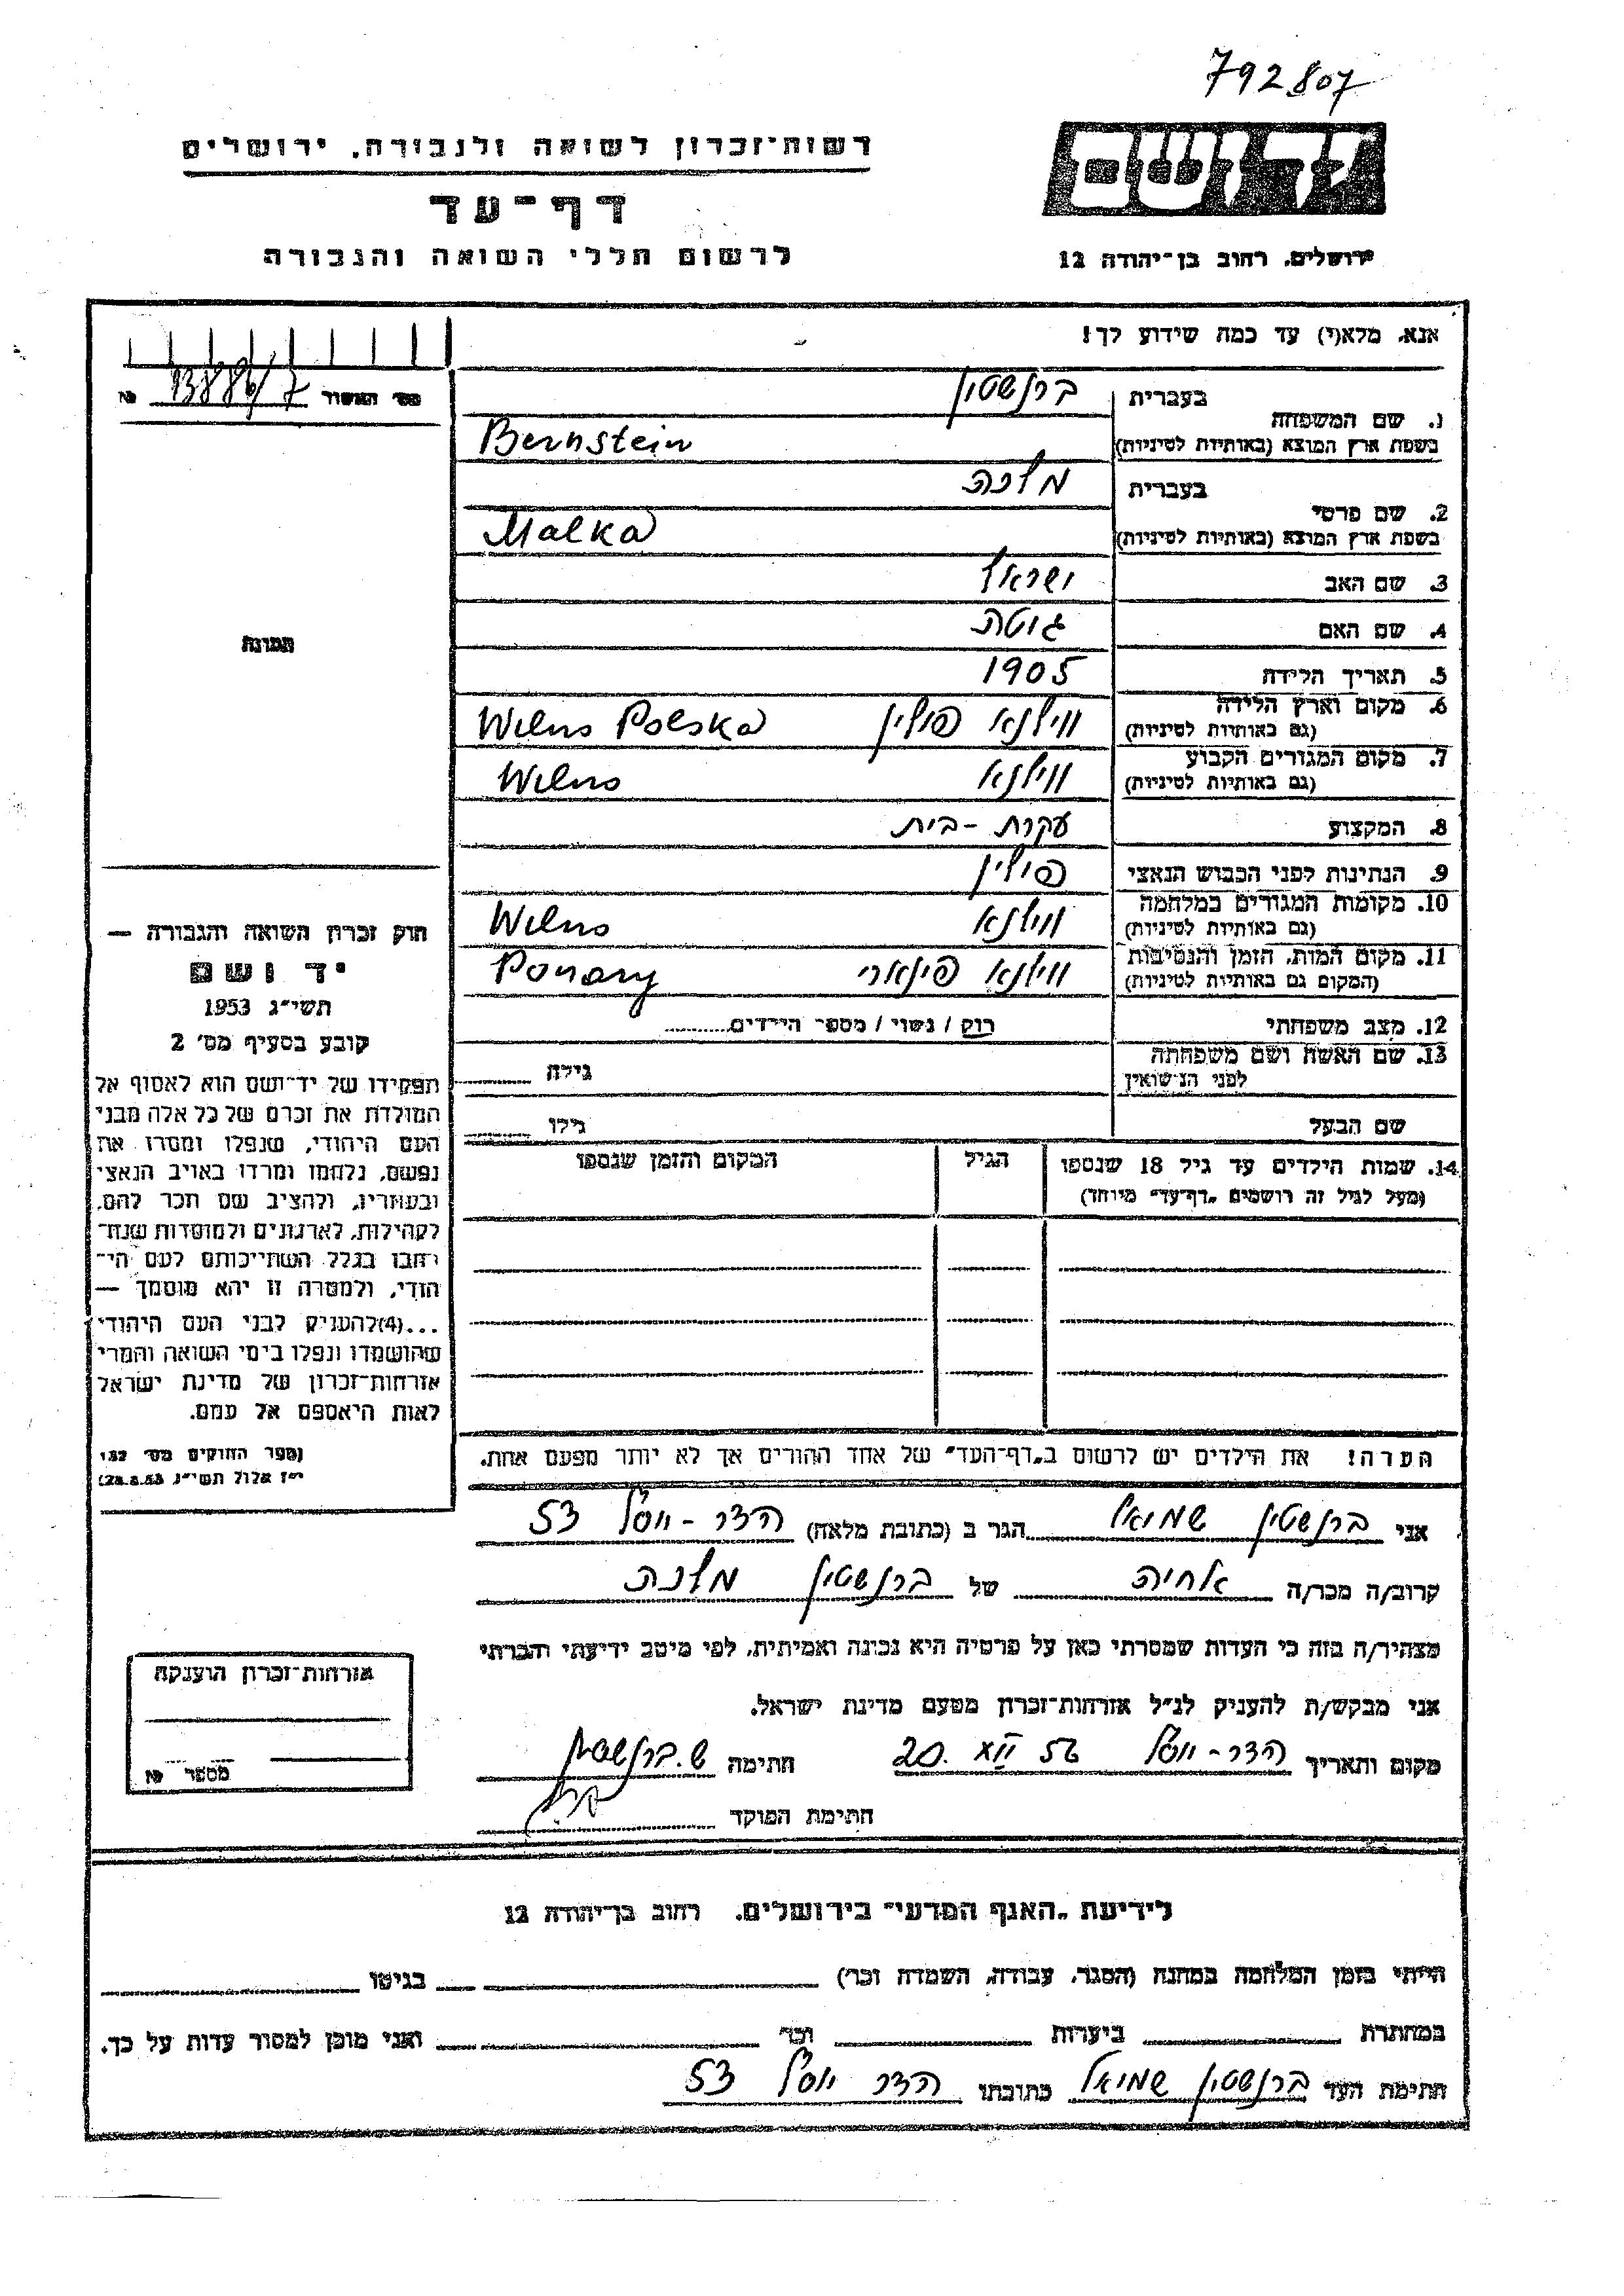 792807
רשות-זכרון לשואה ולגבורה, ירושלים
דף-עד
לרשום חללי השואה והגבורה
ידושם
ירושלים, רחוב בן-יהודה 12
אנא, מלא(י) עד כמה שידוע לך!
מס' האשור 13886/7 №
1. שם המשפחה
בעברית ברנשטין
בשפת ארץ המוצא (באותיות לטיניות) Bernstein
2. שם פרטי
בעברית מלכה
בשפת ארץ המוצא (באותיות לטיניות) Malka
3. שם האב ישראל
4. שם האם גוטה
5. תאריך הלידה 1905
6. מקום וארץ הלידה ווילנא פולין Wilno Polska
(גם באותיות לטיניות)
7. מקום המגורים הקבוע ווילנא Wilno
(גם באותיות לטיניות)
8. המקצוע עקרת-בית
9. הנתינות לפני הכבוש הנאצי פולין
10. מקומות המגורים במלחמה ווילנא Wilno
(גם באותיות לטיניות)
11. מקום המות, הזמן והנסיבות ווילנא פונארי Ponary
(המקום גם באותיות לטיניות)
12. מצב משפחתי רוק / נשוי / מספר הילדים
13. שם האשה ושם משפחתה גילה
לפני הנישואין
שם הבעל גילו
14. שמות הילדים עד גיל 18 שנספו הגיל המקום והזמן שנספו
(מעל לגיל זה רושמים „דף-עד" מיוחד)
הערה! את הילדים יש לרשום ב„דף-העד" של אחד ההורים אך לא יותר מפעם אחת.
תמונה
חוק זכרון השואה והגבורה —
יד ושם
תשי"ג 1953
קובע בסעיף מס' 2
תפקידו של יד-ושם הוא לאסוף אל
המולדת את זכרם של כל אלה מבני
העם היהודי, שנפלו ומסרו את
נפשם, נלחמו ומרדו באויב הנאצי
ובעוזריו, ולהציב שם וזכר להם,
לקהילות, לארגונים ולמוסדות שנח-
רבו בגלל השתייכותם לעם הי-
הודי, ולמטרה זו יהא מוסמך —
...(4)להעניק לבני העם היהודי
שהושמדו ונפלו בימי השואה והמרי
אזרחות-זכרון של מדינת ישראל
לאות היאספם אל עמם.
(ספר החוקים מס' 132
י"ז אלול תשי"ג 28.8.53)
אני ברנשטין שמואל הגר ב (כתובת מלאה) הדר-יוסף 53
קרוב/ה מכר/ה אחיה של ברנשטין מלכה
מצהיר/ה בזה כי העדות שמסרתי כאן על פרטיה היא נכונה ואמיתית, לפי מיטב ידיעתי והכרתי
אני מבקש/ת להעניק לנ"ל אזרחות-זכרון מטעם מדינת ישראל.
מקום ותאריך הדר-יוסף 20. XII 56 חתימה ש. ברנשטין
חתימת הפוקד
אזרחות-זכרון הוענקה
מספר №
לידיעת „האגף המדעי" בירושלים, רחוב בן-יהודה 12
הייתי בזמן המלחמה במחנה (הסגר, עבודה, השמדה וכר') בגיטו
במחתרת ביערות וכר' ואני מוכן למסור עדות על כך.
חתימת העד ברנשטין שמואל כתובתו הדר יוסף 53